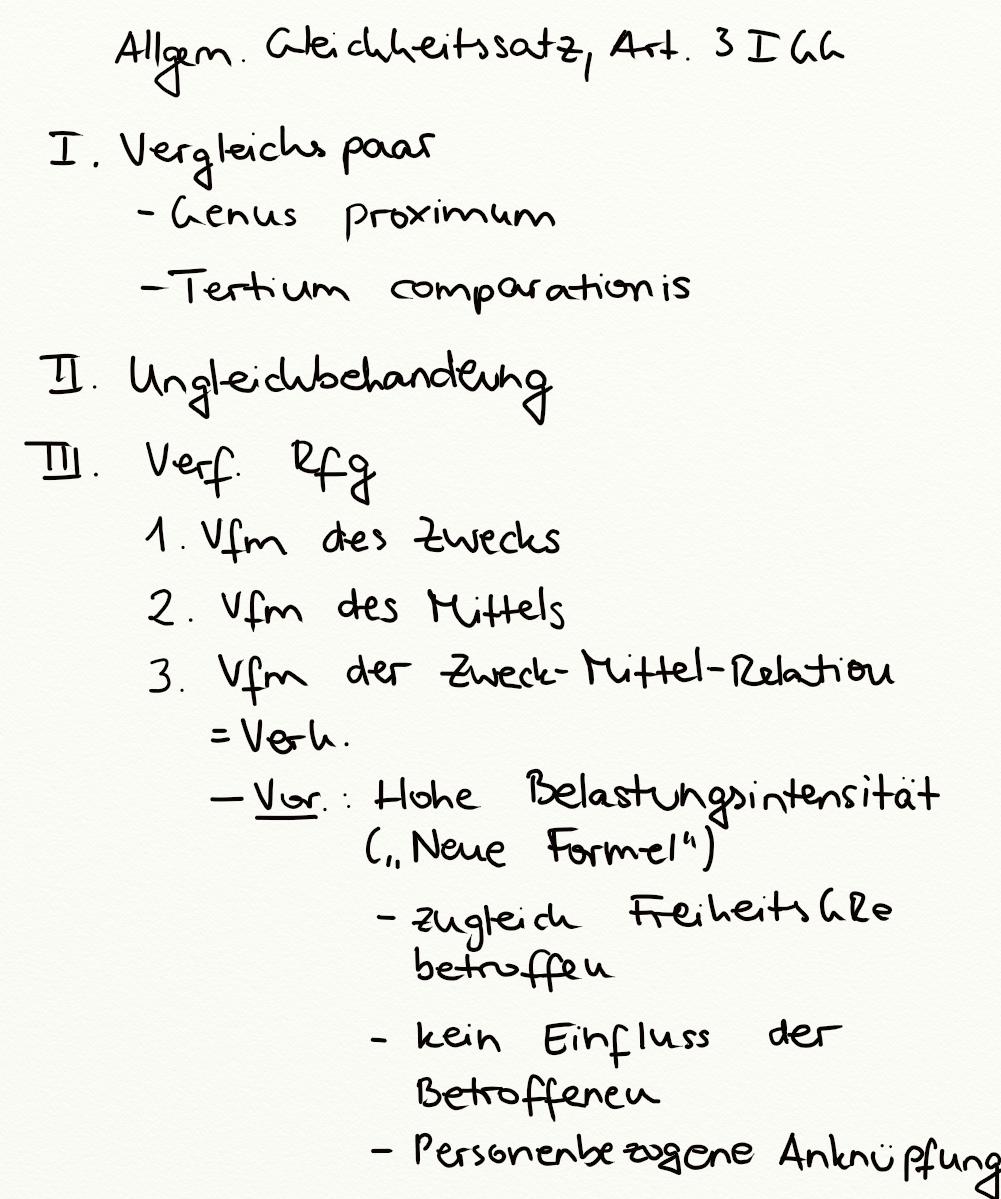 Allgem. Gleichheitssatz, Art. 3 I GG
I. Vergleichspaar
- Genus proximum
- Tertium comparationis
II. Ungleichbehandlung
III. Verf. Rfg
1. Vfm des Zwecks
2. Vfm des Mittels
3. Vfm der Zweck-Mittel-Relation
= Verh.
- Vor.: Hohe Belastungsintensität
(„Neue Formel“)
- zugleich FreiheitsGRe
betroffen
- kein Einfluss der
Betroffenen
- Personenbezogene Anknüpfung